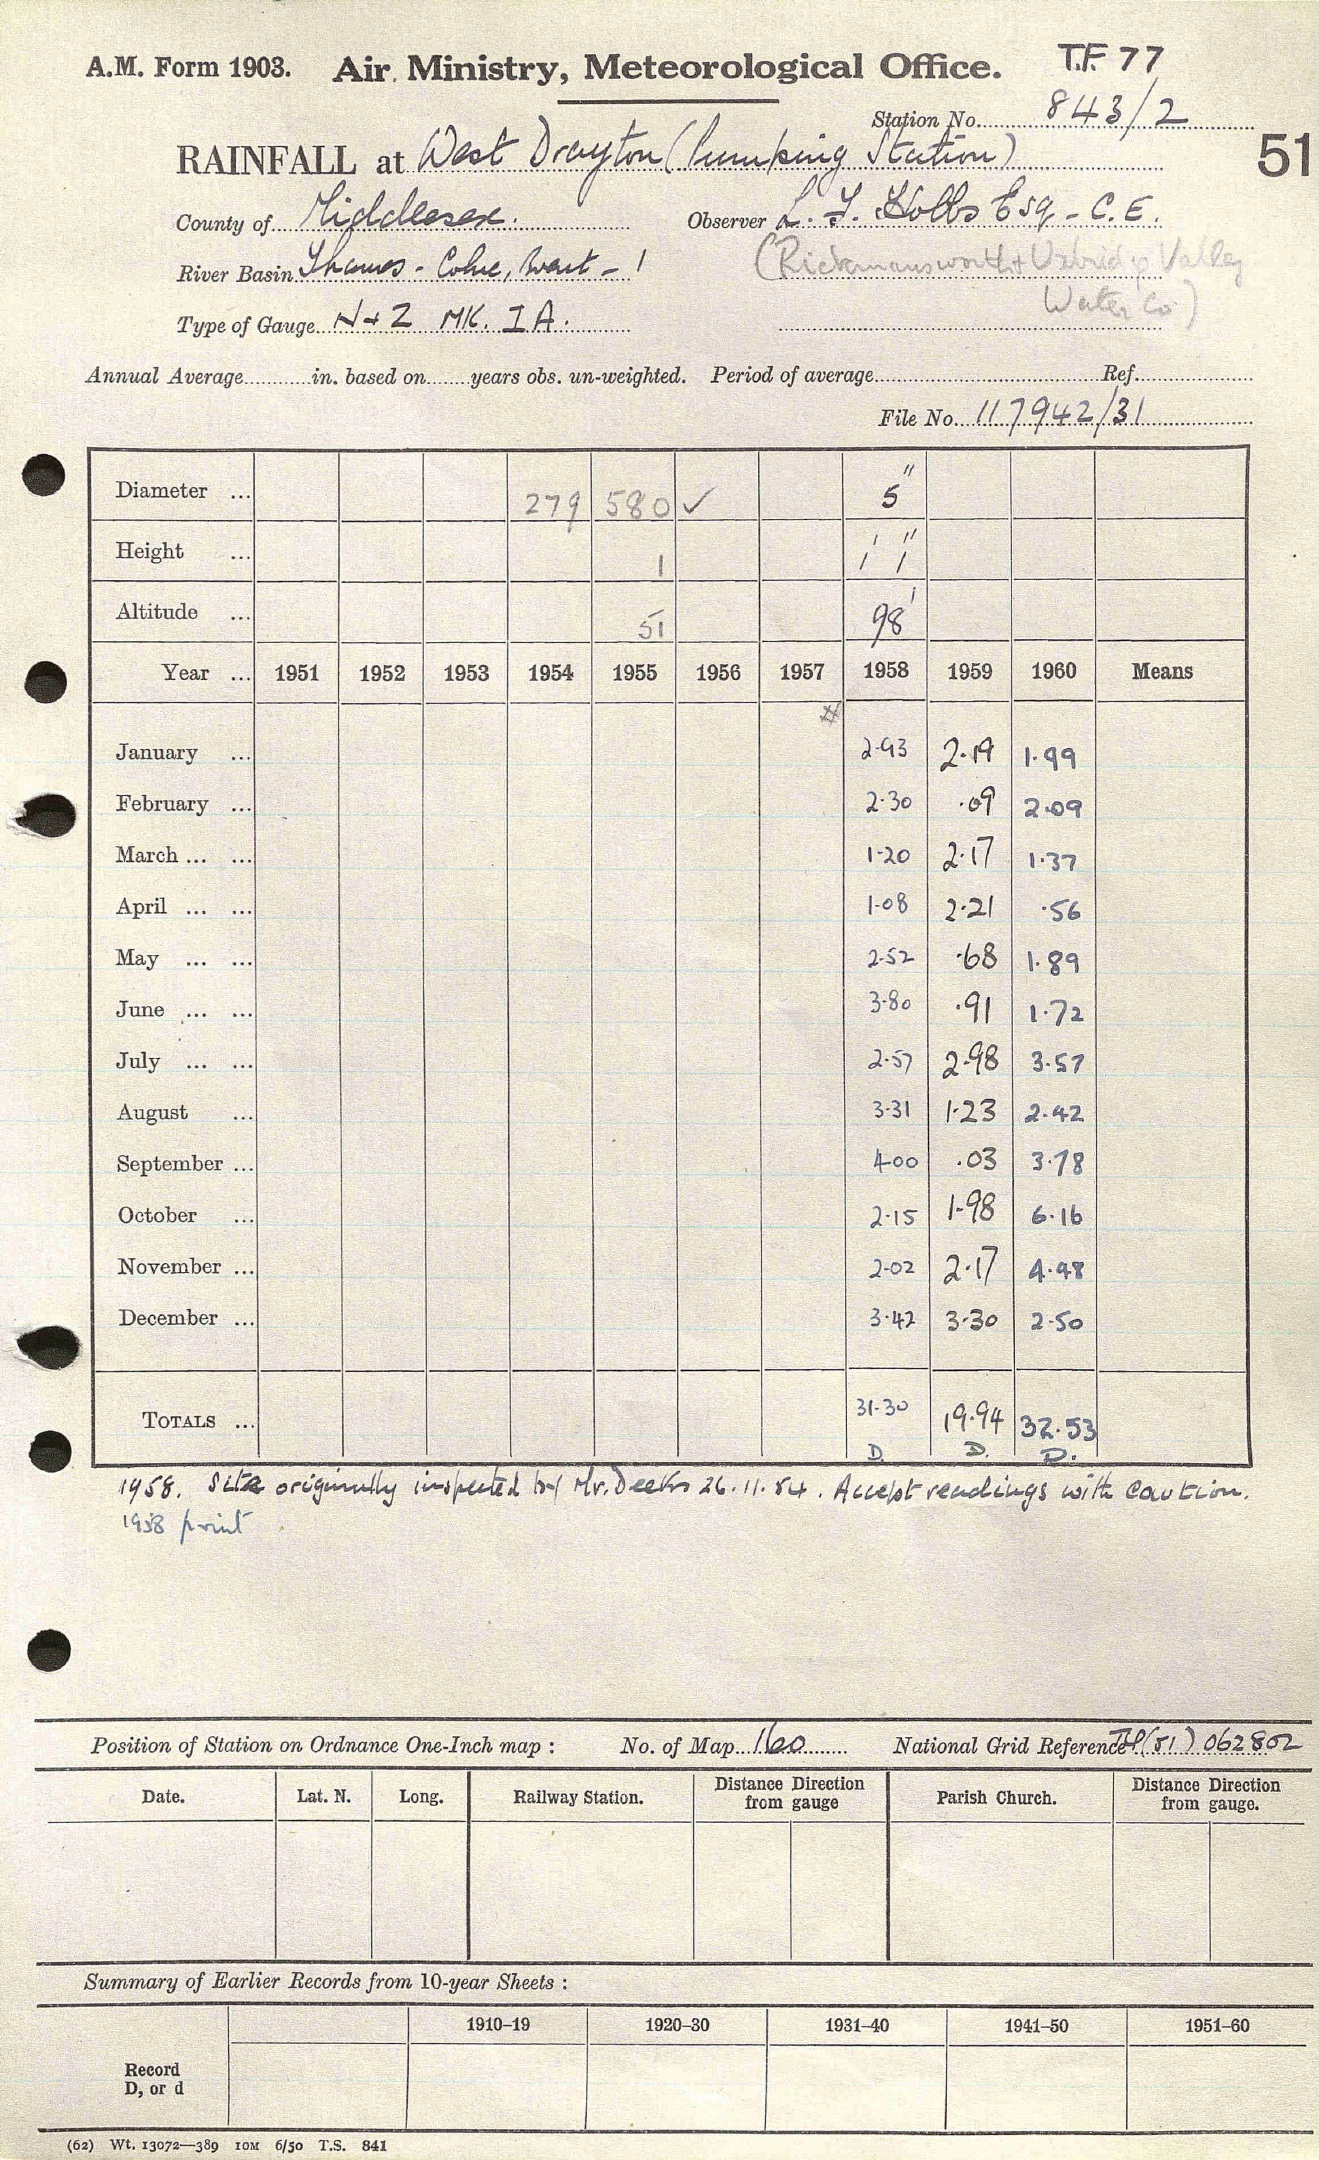 A.M. Form 1903. Air Ministry, Meteorological Office. T.F. 77
Station No. 843/2
51
RAINFALL at West Drayton (Pumping Station)
County of Middlesex. Observer L. J. Hobbs Esq - C.E.
River Basin Thames - Colne, - 1 (Rickmansworth + Uxbridge Valley
Water Co)
Type of Gauge N+Z MK. IA.
Annual Average............in. based on.......years obs. un-weighted. Period of average............Ref............
File No. 117942/31
Diameter ... 279 580 ✓ 5"
Height ... 1 1' 1"
Altitude ... 51 98'
Year ... 1951 1952 1953 1954 1955 1956 1957 1958 1959 1960 Means
January ... 2.93 2.19 1.99
February ... 2.30 .09 2.09
March ... ... 1.20 2.17 1.37
April ... ... 1.08 2.21 .56
May ... ... 2.52 .68 1.89
June ... ... 3.80 .91 1.72
July ... ... 2.57 2.98 3.57
August ... 3.31 1.23 2.42
September ... 4.00 .03 3.78
October ... 2.15 1.98 6.16
November ... 2.02 2.17 4.98
December ... 3.42 3.30 2.50
TOTALS ... 31.30 19.94 32.53
D. D. D.
1958. Site originally inspected by Mr. Deeks 26.11.54. Accept readings with caution.
1958 print
Position of Station on Ordnance One-Inch map : No. of Map 160 National Grid Reference (51) 062802
Date. Lat. N. Long. Railway Station. Distance Direction from gauge Parish Church. Distance Direction from gauge.
Summary of Earlier Records from 10-year Sheets :
1910–19 1920–30 1931–40 1941–50 1951–60
Record
D, or d
(62) Wt. 13072—389 10M 6/50 T.S. 841